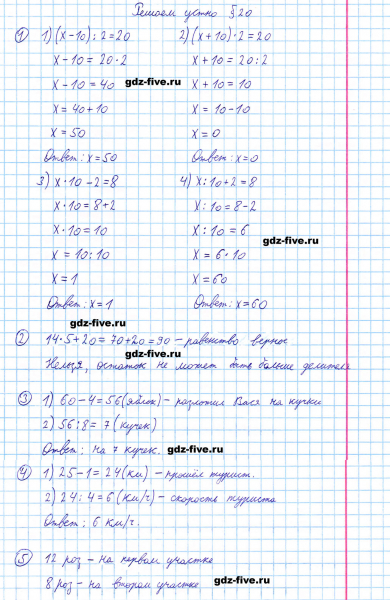 Решаем устно § 20
1 1) (x-10):2=20 2) (x+10)·2=20
x-10=20·2 x+10=20:2
x-10=40 gdz-five.ru x+10=10
x=40+10 x=10-10
x=50 x=0
Ответ: x=50 Ответ: x=0
3) x·10-2=8 4) x:10+2=8
x·10=8+2 x:10=8-2
x·10=10 x:10=6 gdz-five.ru
x=10:10 x=6·10
x=1 x=60
Ответ: x=1 Ответ: x=60
gdz-five.ru
2 14·5+20=70+20=90 - равенство верное
gdz-five.ru
Нельзя, остаток не может быть больше делителя
3 1) 60-4=56 (яблок) - разложил Вася на кучки
gdz-five.ru
2) 56:8=7 (кучек)
Ответ: на 7 кучек. gdz-five.ru
4 1) 25-1=24 (км) - прошёл турист.
2) 24:4=6 (км/ч) - скорость туриста
Ответ: 6 км/ч. gdz-five.ru
5 12 роз - на первом участке
8 роз - на втором участке gdz-five.ru